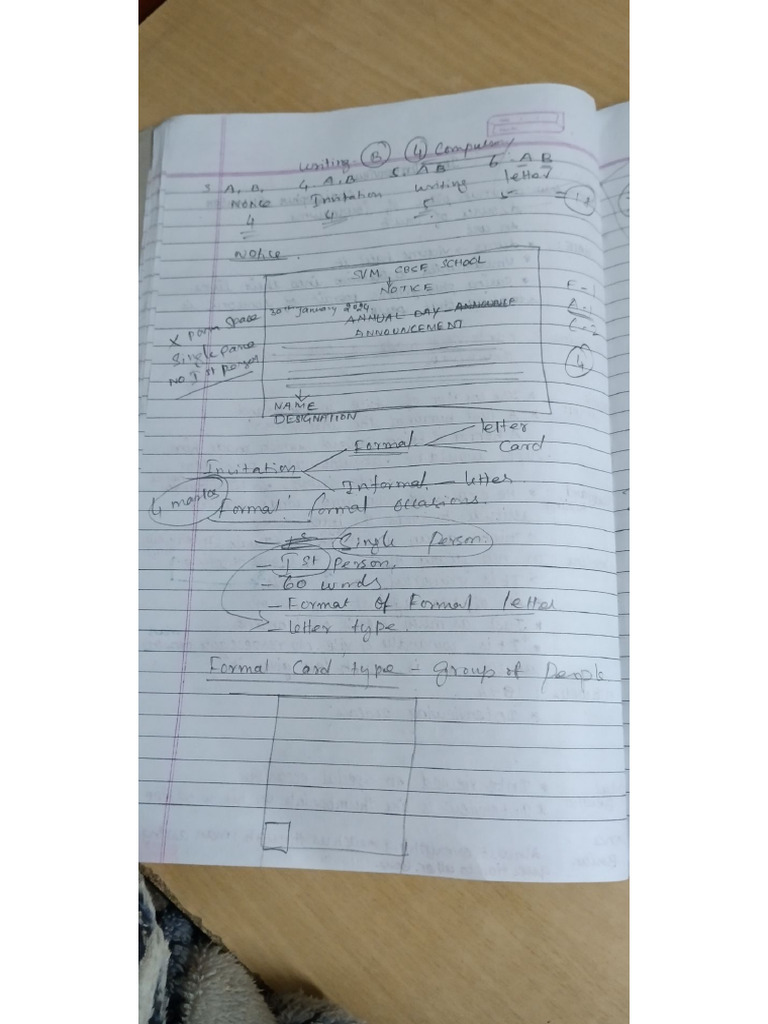 Writing (B) (4) Compulsory
3. A, B, 4. A, B 5. A B 6. A B
Notice Invitation Writing letter
4 4 5 5 = (18)
Notice.
SVM CBCE SCHOOL
NOTICE
30th January 2024
ANNUAL DAY ANNOUNCE
ANNOUNCEMENT
X param space
Single para
No Ist person
F-1
A-1
C-2
(4)
NAME
DESIGNATION
Formal letter
Card
Invitation
Informal - letter
4 marks
Formal formal occasions
- Single person.
- Ist person.
- 60 words
- Format of Formal letter
- letter type.
Formal Card type - group of people